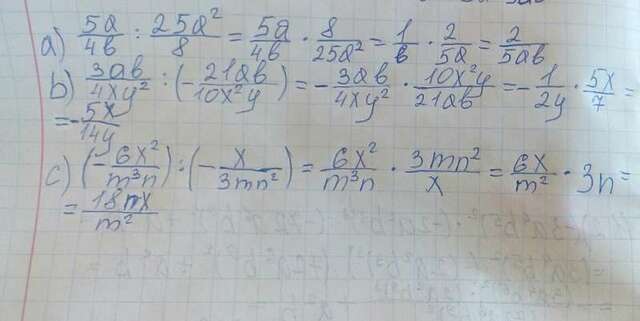 a) 5a/4b : 25a²/8 = 5a/4b · 8/25a² = 1/b · 2/5a = 2/5ab
b) 3ab/4xy² : (- 21ab/10x²y) = - 3ab/4xy² · 10x²y/21ab = - 1/2y · 5x/7 =
= - 5x/14y
c) (- 6x²/m³n) : (- x/3mn²) = 6x²/m³n · 3mn²/x = 6x/m² · 3n =
= 18nx/m²